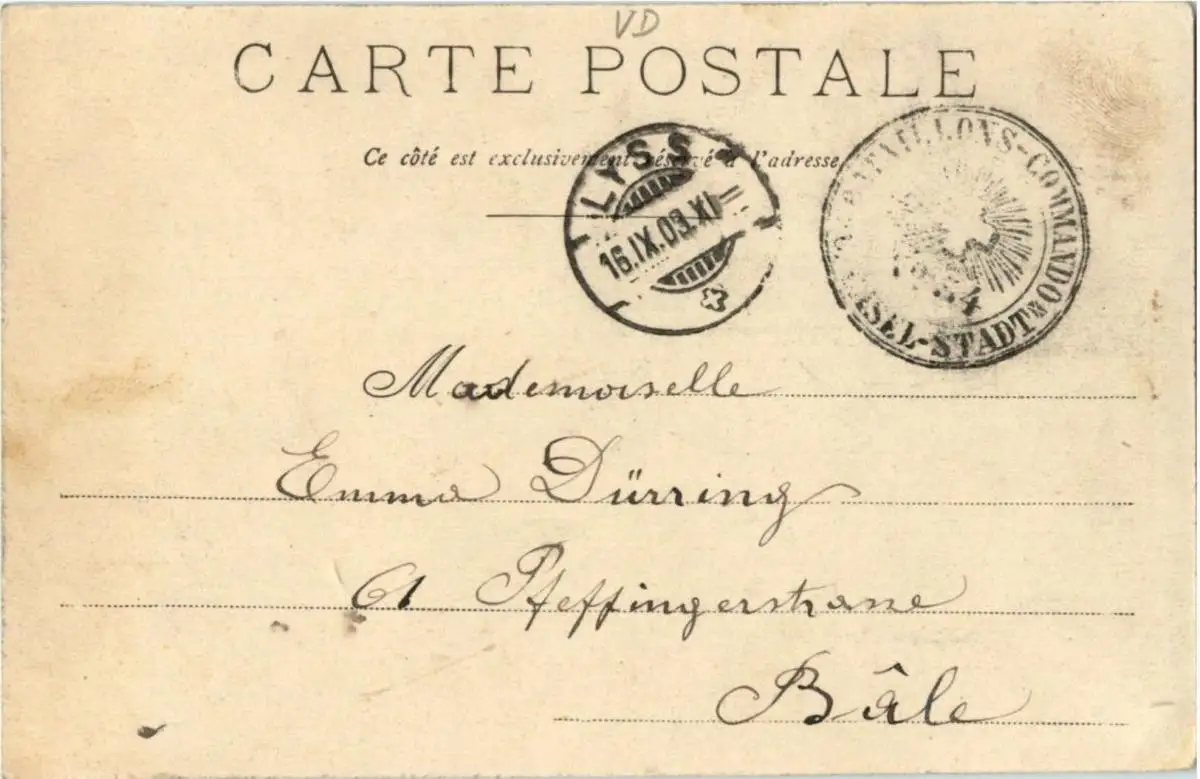 VD
CARTE POSTALE
Ce côté est exclusivement réservé à l'adresse
LYSS
16.IX.03.XI
BATAILLONS-COMMANDO
BASEL-STADT
54
Mademoiselle
Emma Dürring
61 Pfeffingerstrasse
Bâle